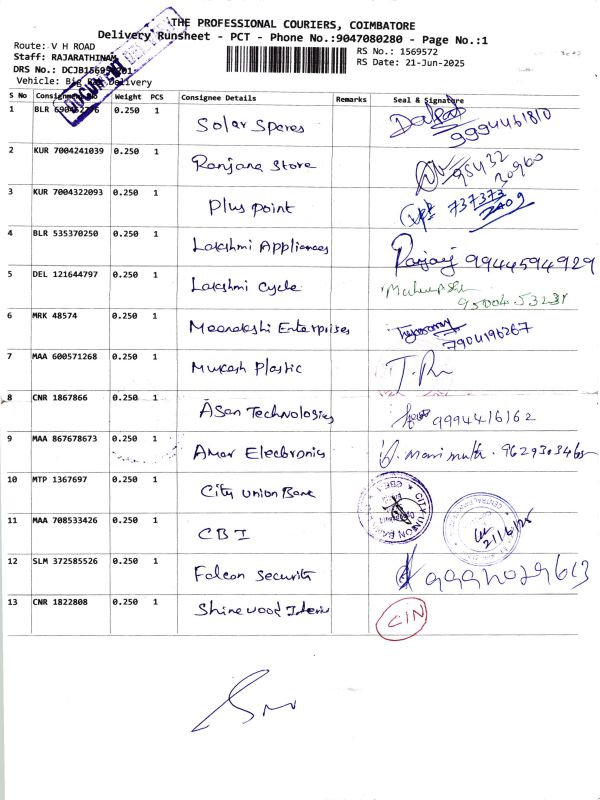 THE PROFESSIONAL COURIERS, COIMBATORE
Delivery Runsheet - PCT - Phone No.:9047080280 - Page No.:1
Route: V H ROAD
RS No.: 1569572
Staff: RAJARATHINAM
RS Date: 21-Jun-2025
DRS No.:
Vehicle: Delivery
DOCUMENT DELIVERY
S No Consignment No Weight PCS Consignee Details Remarks Seal & Signature
1 BLR 0.250 1 Solar Spares 9994461810
2 KUR 7004241039 0.250 1 Ranjana Store 95432
20960
3 KUR 7004322093 0.250 1 Plus point 737373
2409
4 BLR 535370250 0.250 1 Lakshmi Appliances 9944594929
5 DEL 121644797 0.250 1 Lakshmi Cycle
6 MRK 48574 0.250 1 Meenakshi Enterprises 7904196267
7 MAA 600571268 0.250 1 Mukesh Plastic
8 CNR 1867866 0.250 1 Asan Technologies
9 MAA 867678673 0.250 1 Amar Electronics
10 MTP 1367697 0.250 1 City Union Bank
CITY UNION BANK
11 MAA 708533426 0.250 1 CBI 21/6/25
12 SLM 372585526 0.250 1 Falcon Security
13 CNR 1822808 0.250 1 Shinewood CIN